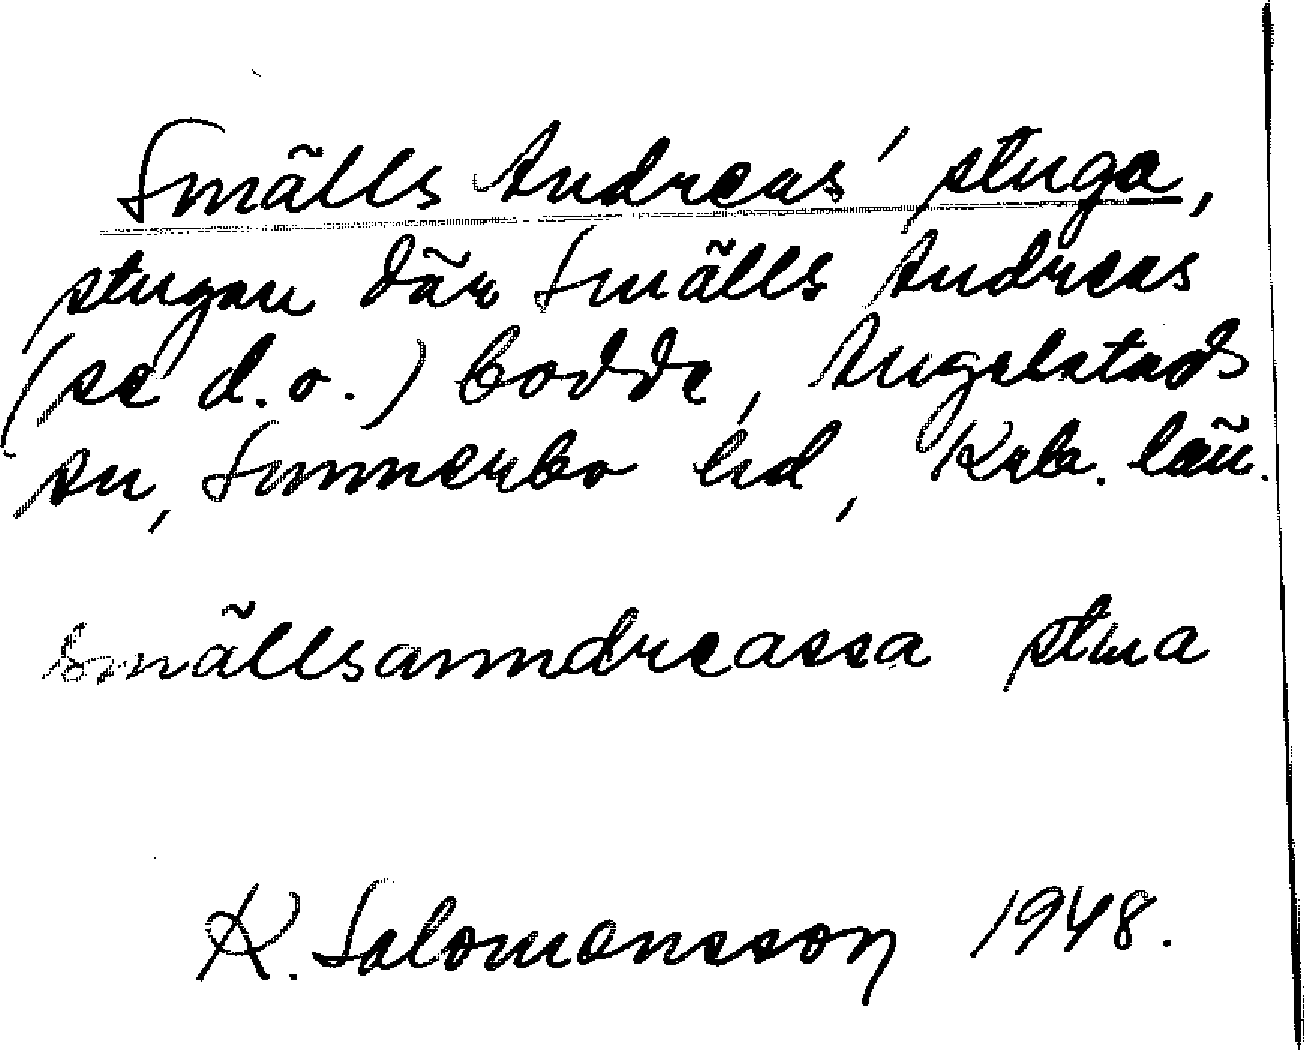 Smälls Andreas' stuga,
stugan där Smälls Andreas
(se d.o.) bodde, Angelstads
sn, Sunnerbo hd, Krb. län.
smällsanndreassa stua
K. Salomonsson 1948.